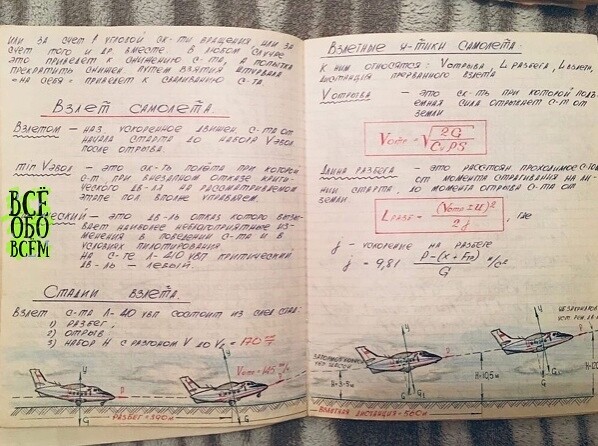 или за счет ↓ угловой ск-ти вращения, или за
счет того и др. вместе. В любом случае
это приведет к снижению с-та, а попытка
прекратить снижен. путем взятия штурвала
«на себя» приведет к сваливанию с-та.
Взлет самолета.
Взлетом – наз. ускоренное движен. с-та от
начала старта до набора V эвол
после отрыва.
min V эвол – это ск-ть полёта при которой
с-т при внезапном отказе крити-
ческого дв-ля на рассматриваемом
этапе пол. вполне управляем.
ВСЁ
ОБО
ВСЁМ
– это дв-ль отказ которого вызы-
вает наиболее неблагоприятные из-
менения в поведении с-та и в
условиях пилотирования
На с-те Л-410 УВП критический
дв-ль – левый.
Стадии взлета.
Взлёт с-та Л-410 УВП состоит из след. стад:
1) разбег;
2) отрыв
3) набор H с разгоном V до V₂ = 170
Взлетные х-тики самолета.
К ним относятся: V отрыва, L разбега, L взлетн,
дистанция прерванного взлёта
V отрыва – это ск-ть при которой подъ-
емная сила отрывает с-т от
земли
V отр = √2G / CyρS
Длина разбега – это расстоян. проходимое с-том
от момента страгивания на ли-
нии старта, до момента отрыва с-та от
земли.
L разб = (V отр ± U)² / 2j, где
j – ускорение на разбеге
j = 9,81 P-(X+Fтр) / G м/с²
Y
P
G
Разбег = 390м
V отр = 145
Y
G
H = 3-5м
Y
G
H=10,5м
Взлетная дистанция = 560м
Y
G